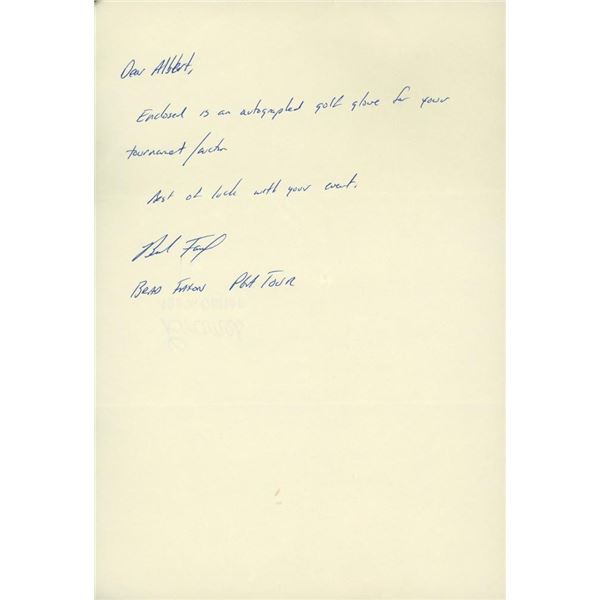 Dear Albert,
Enclosed is an autographed golf glove for your
tournament/auction
Best of luck with your event.
Brad Faxon
BRAD FAXON PGA TOUR